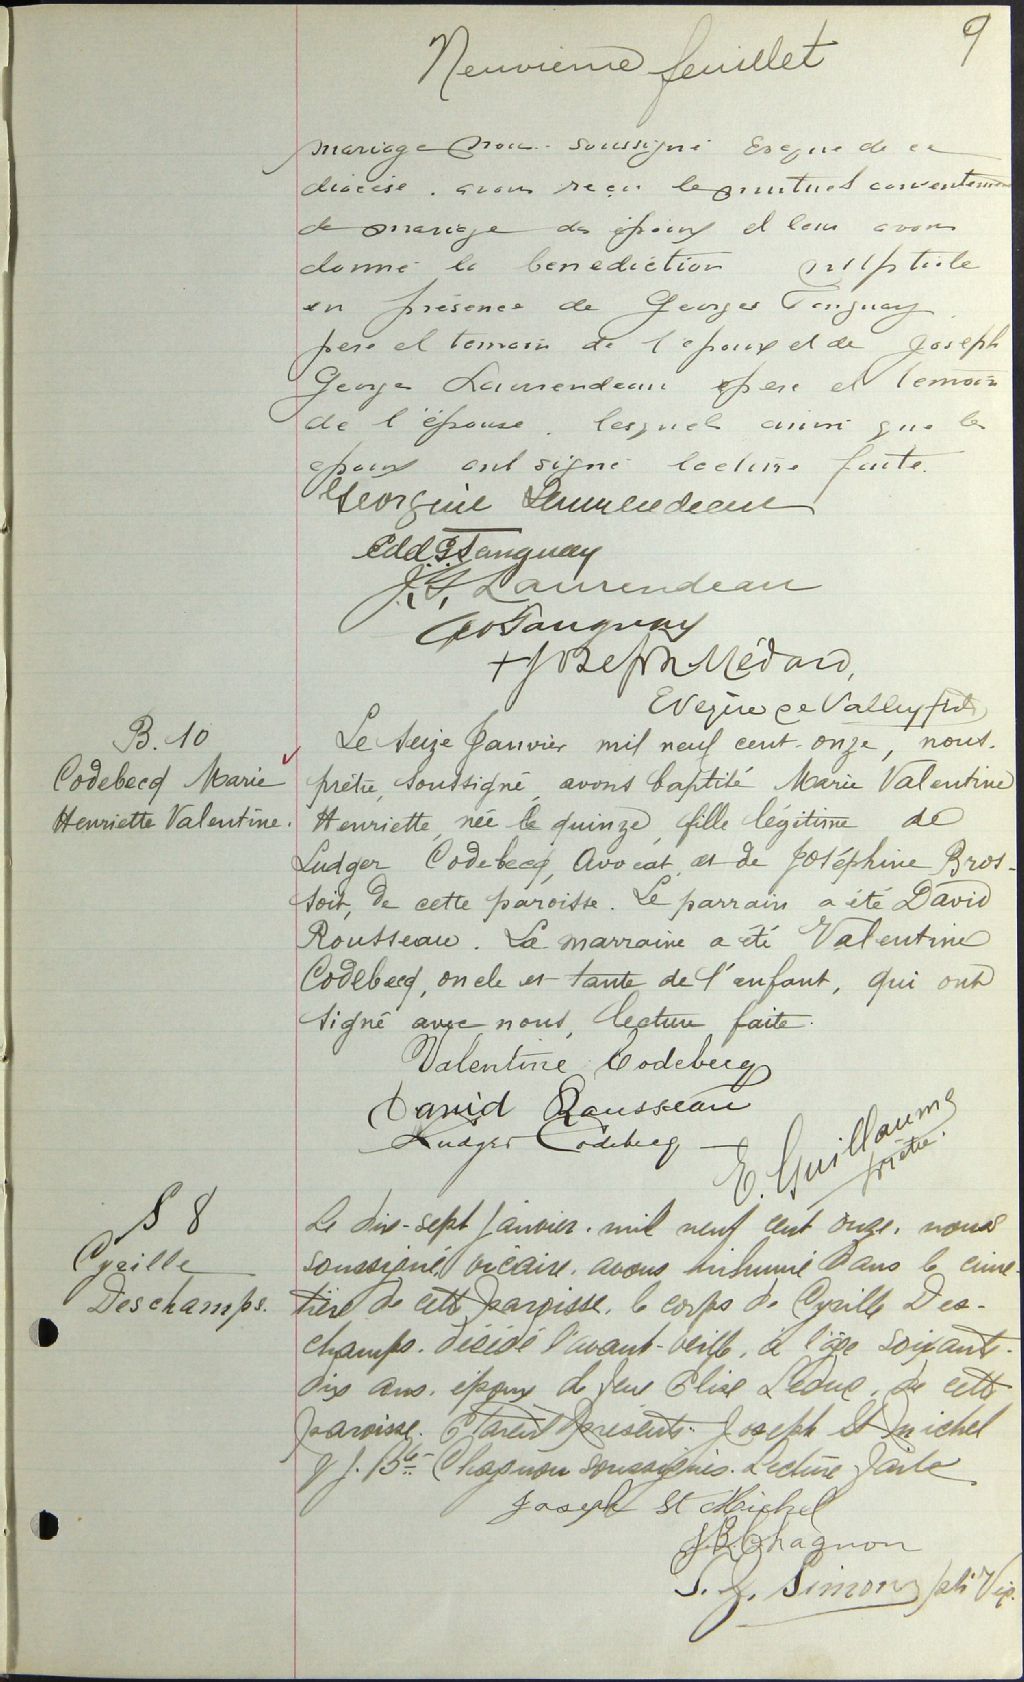 9
Neuvième feuillet
mariage nous soussigné Evêque de ce
diocèse, avons reçu le mutuel consentement
de mariage des époux et leur avons
donné la bénédiction nuptiale
en présence de Georges Tanguay
père et temoin de l'époux et de Joseph
George Laurendeau père et temoin
de l'épouse, lesquels ainsi que les
epoux ont signé lecture faite.
Georgine Laurendeau
Edd. G. Tanguay
J. G. Laurendeau
Geo Tanguay
+ Joseph Médard,
Evêque de Valleyfield
B. 10
Codebecq Marie
Henriette Valentine.
Le seize Janvier mil neuf cent-onze, nous,
prêtre, soussigné, avons baptisé Marie Valentine
Henriette, née le quinze, fille légitime de
Ludger Codebecq, Avocat, et de Joséphine Bros-
soit, de cette paroisse. Le parrain a été David
Rousseau. La marraine a été Valentine
Codebecq, oncle et tante de l'enfant, qui ont
signé avec nous, lecture faite.
Valentine Codebecq
David Rousseau
Ludger Codebecq
E. Guillaume
prêtre.
S 8
Cyrille
Deschamps.
Le dix-sept Janvier, mil neuf cent onze, nous
soussigné, vicaire, avons inhumé dans le cime-
tière de cette paroisse, le corps de Cyrille Des-
champs, décédé l'avant-veille, à l'âge soixante-
dix ans, époux de feue Elise Leduc, de cette
paroisse. Etaient présents Joseph St Michel
& J. Bte Chagnon soussignés. Lecture faite
Joseph St Michel
J. B. Chagnon
S. J. Simon, ptr Vic.